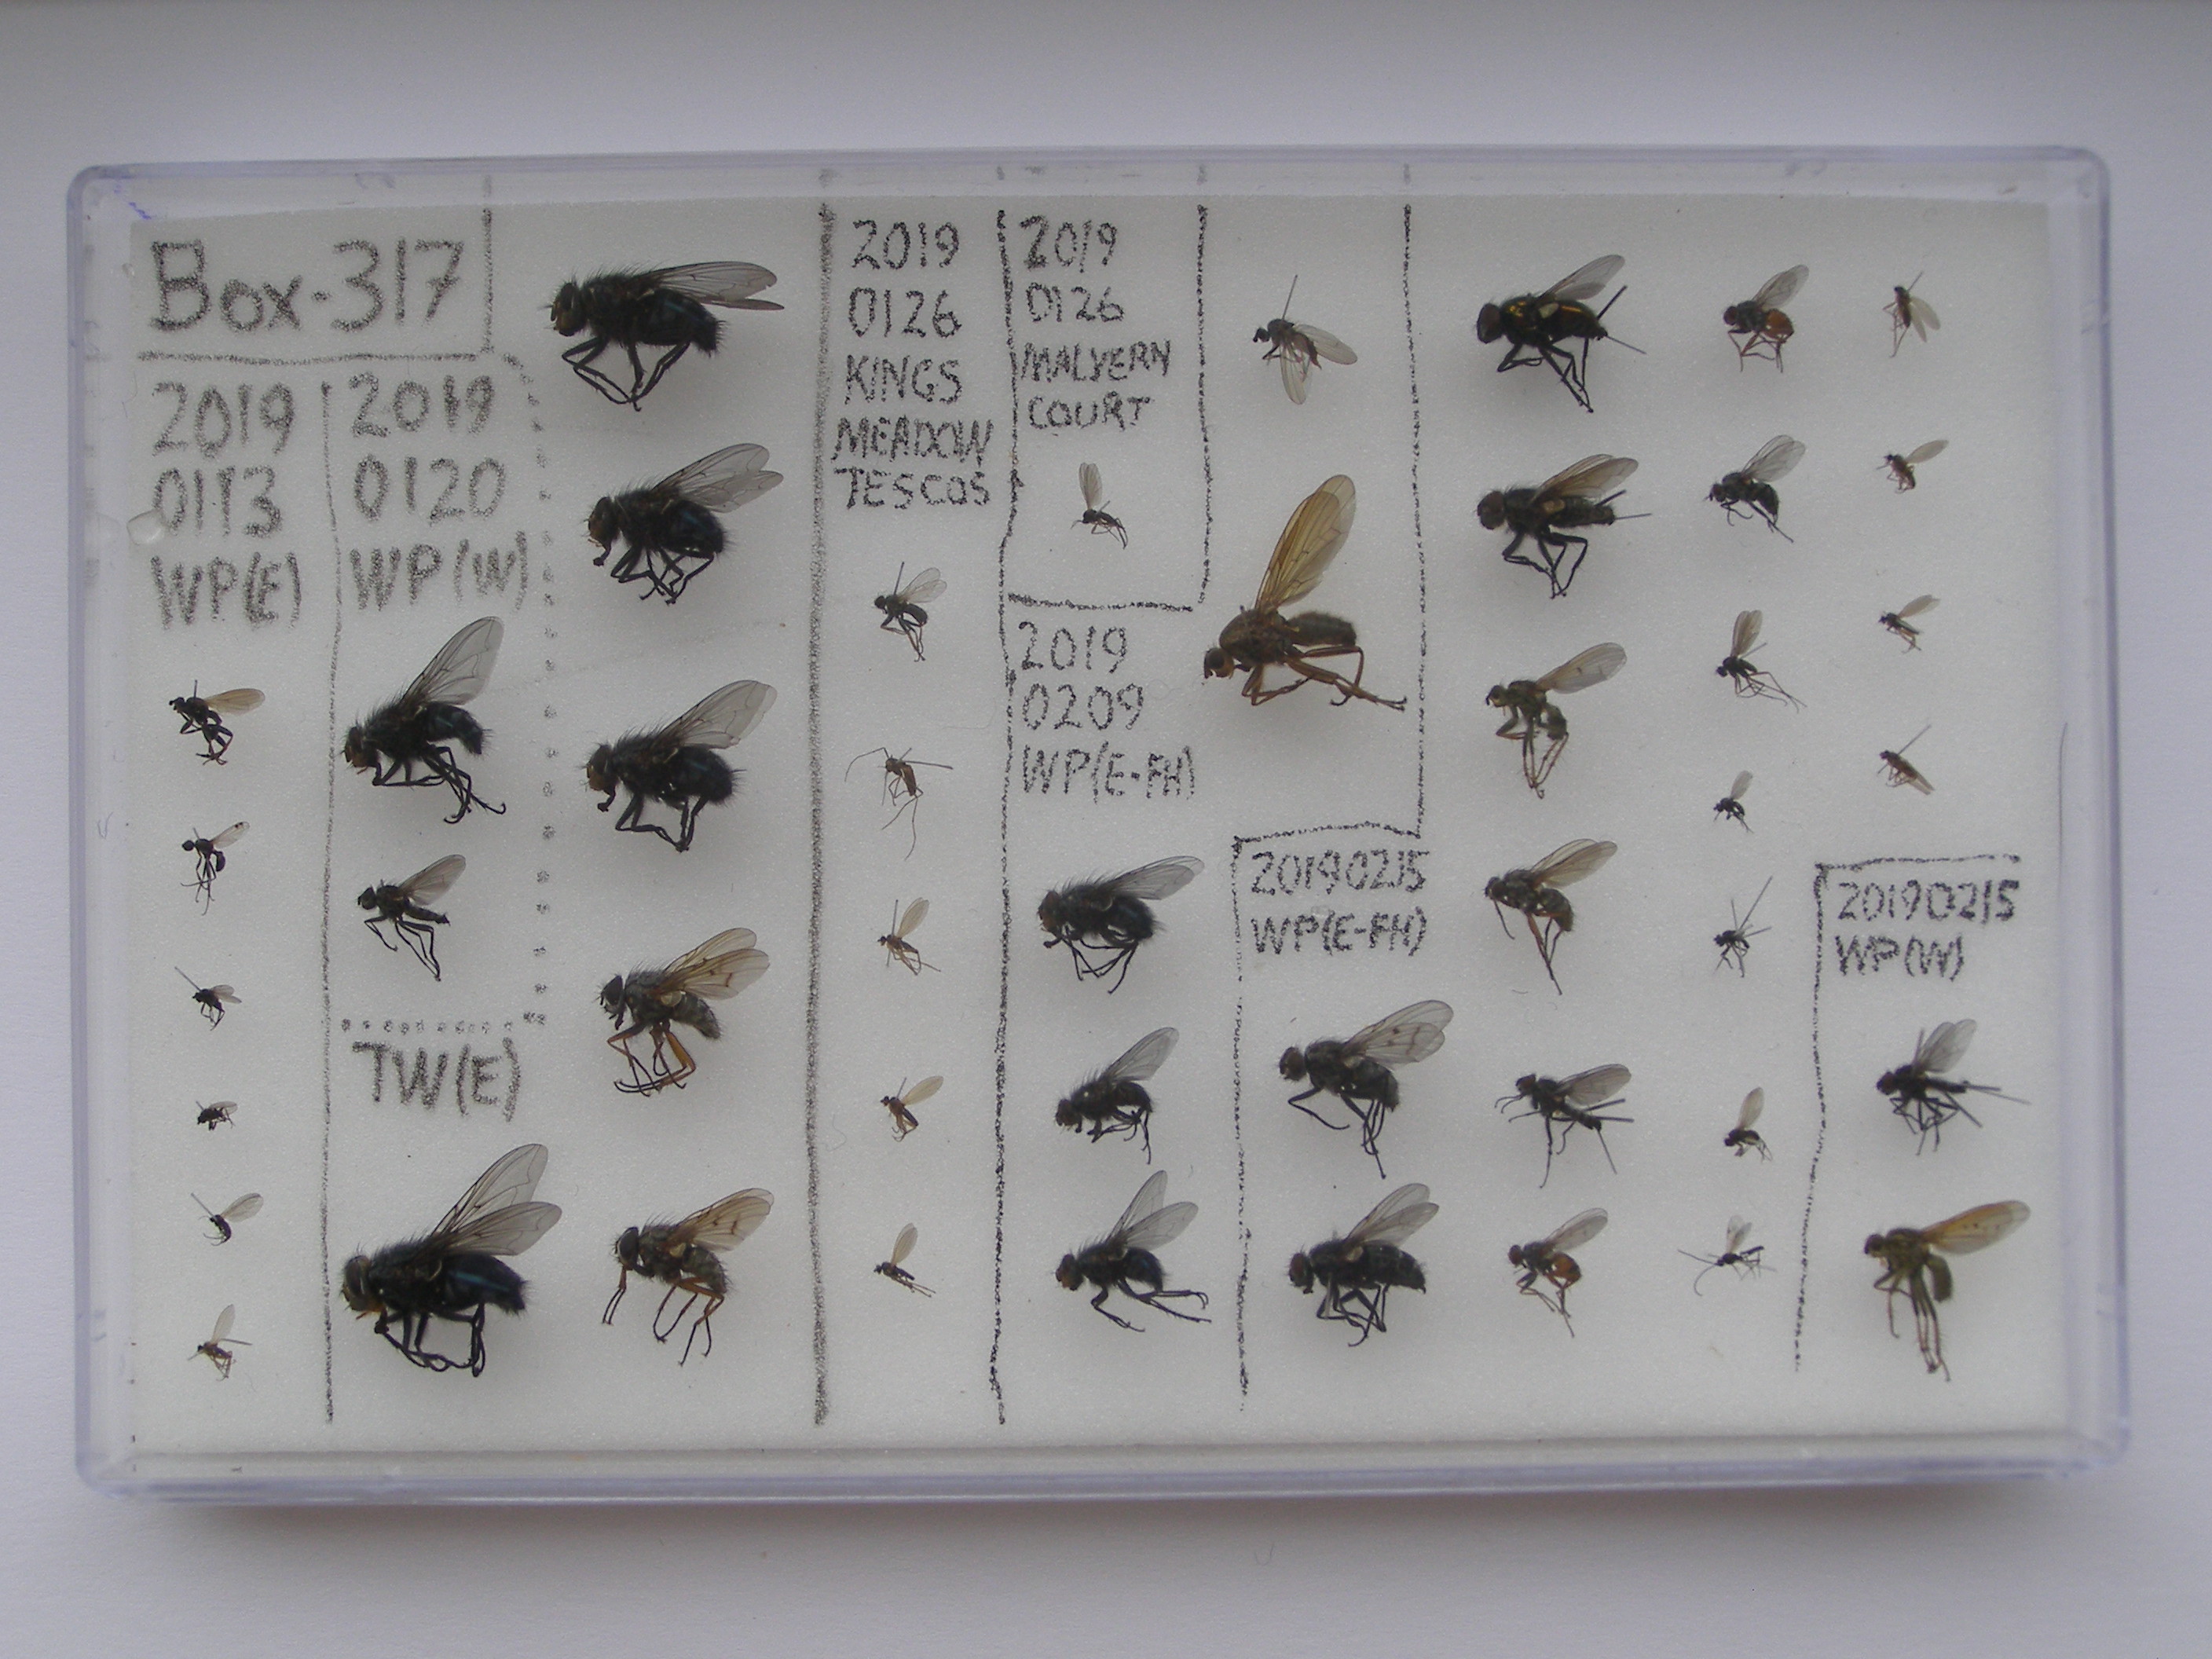 Box-317
2019
0113
WP(E)
2019
0120
WP(W)
TW(E)
2019
0126
KINGS
MEADOW
TESCOS
2019
0126
MALVERN
COURT
2019
0209
WP(E-FH)
20190215
WP(E-FH)
20190215
WP(W)